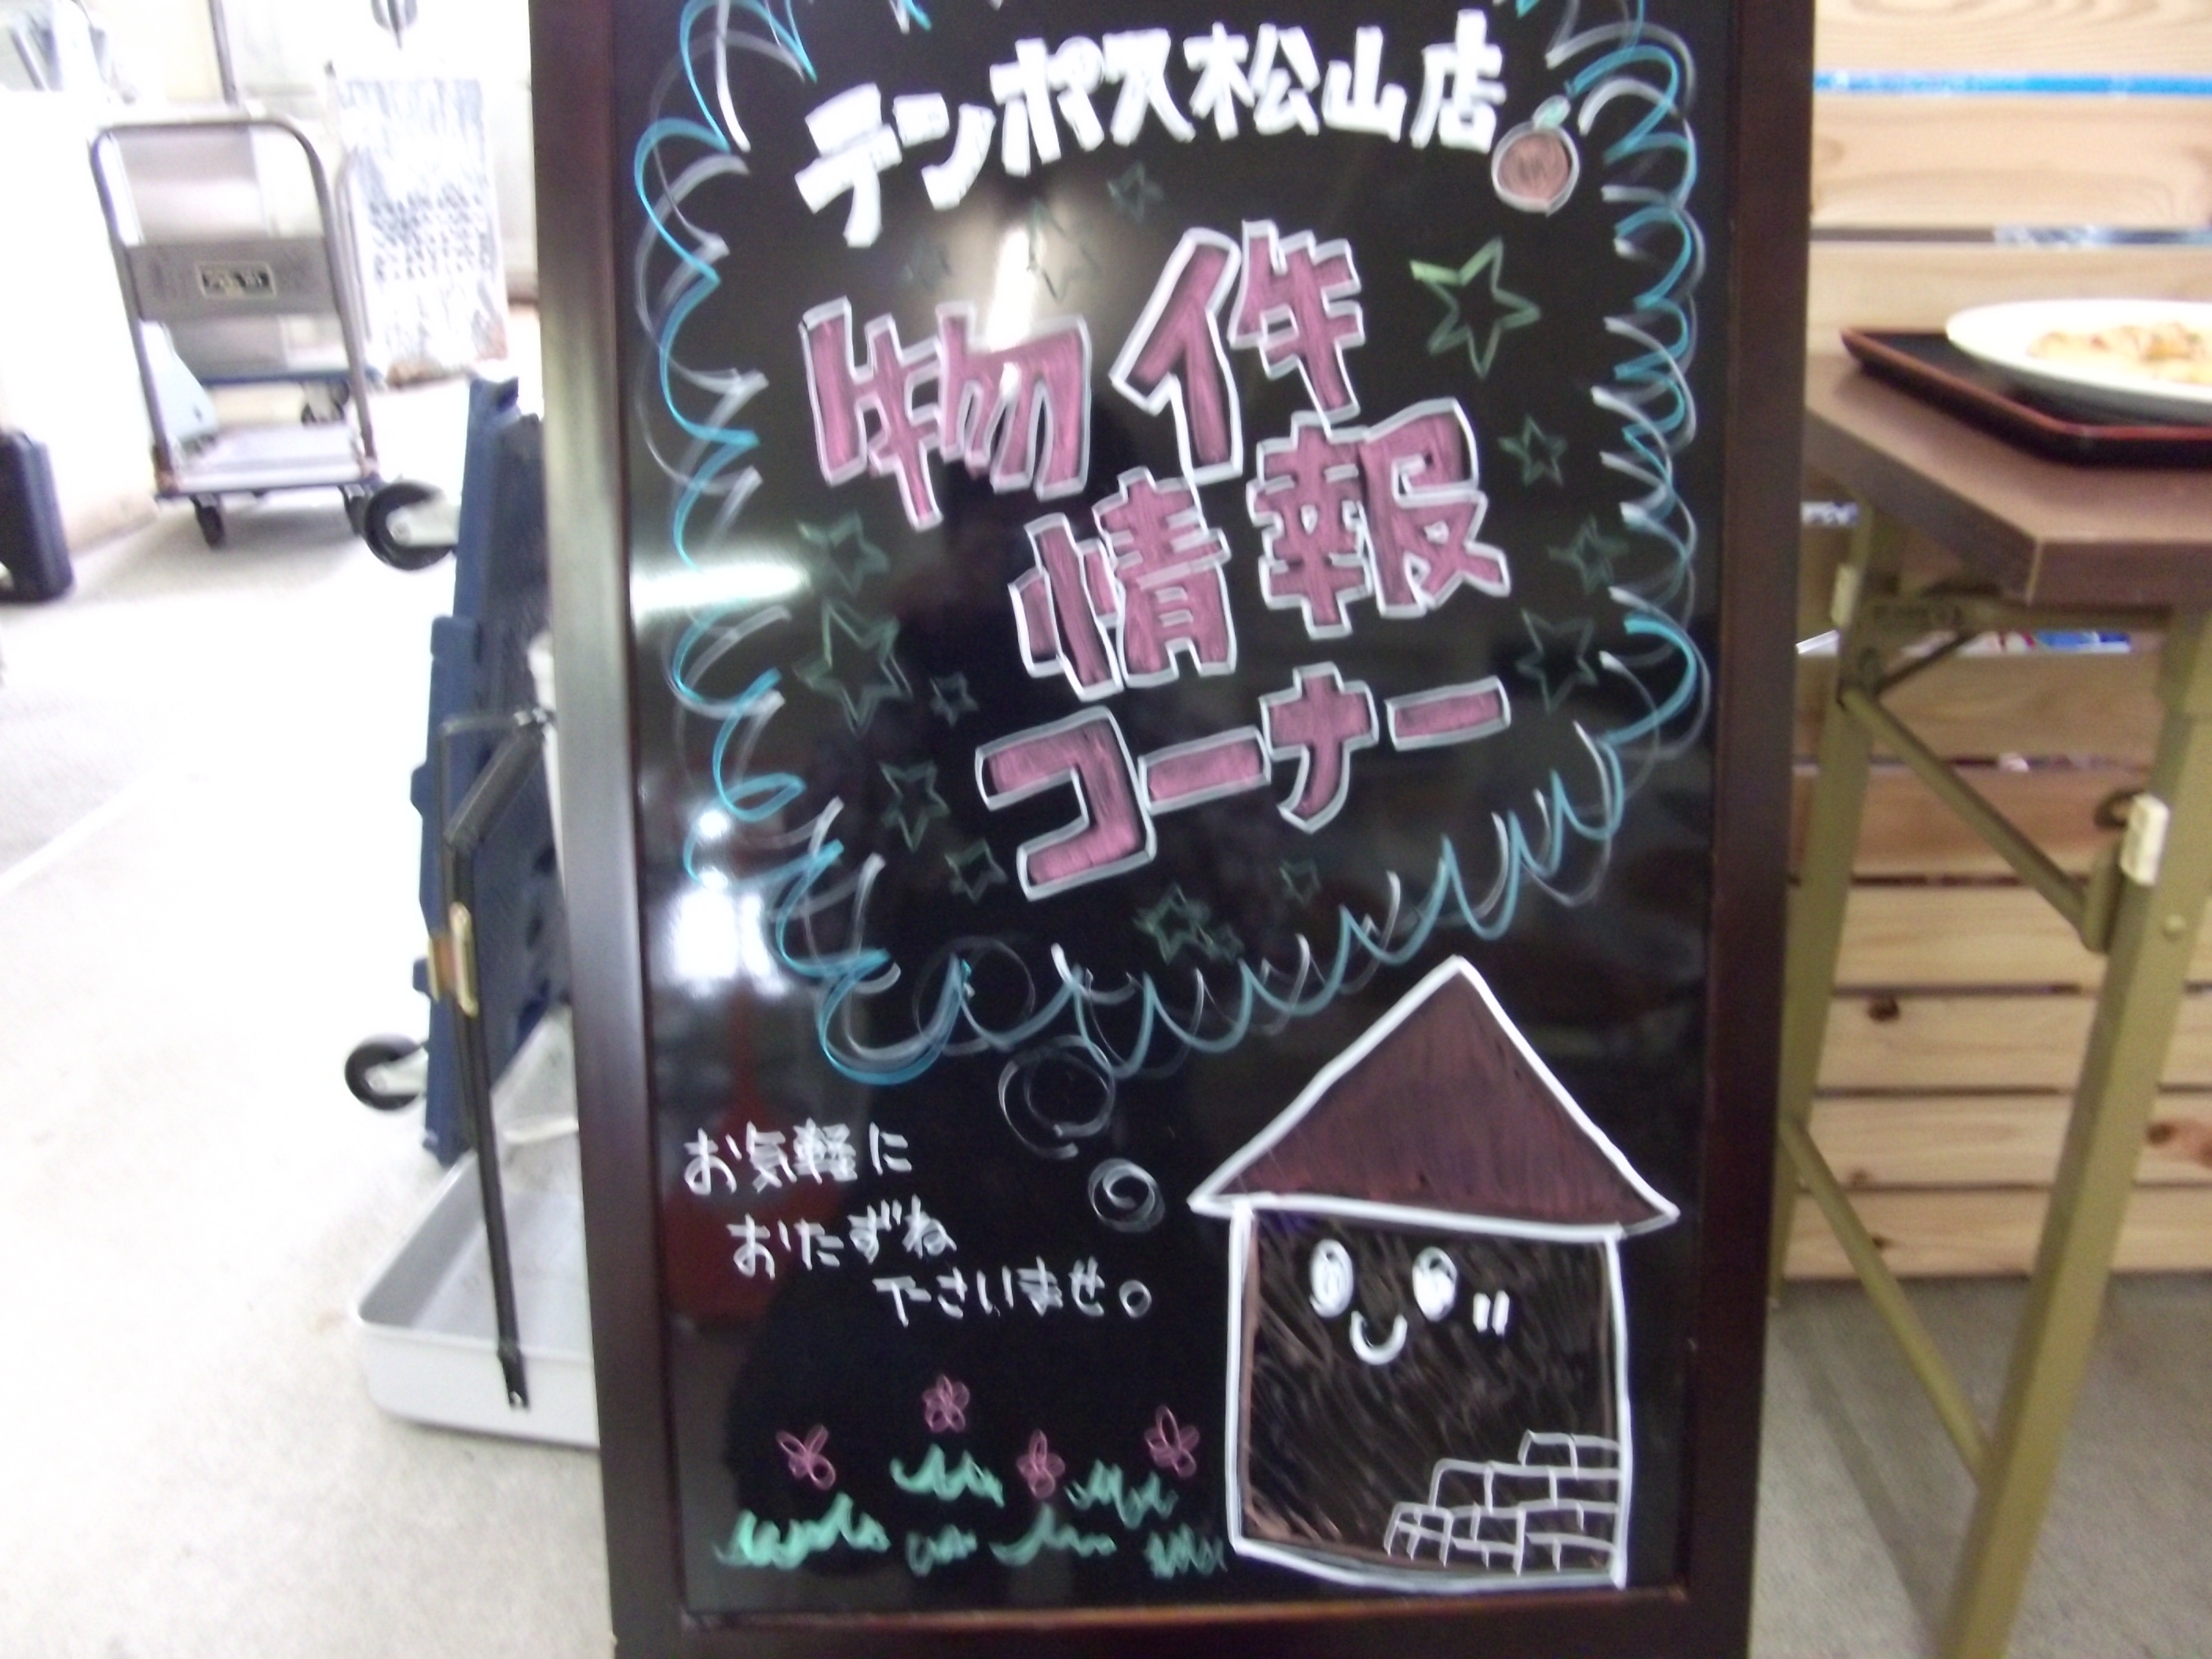 テンポス松山店
物件
情報
コーナー
お気軽に
おたずね
下さいませ。